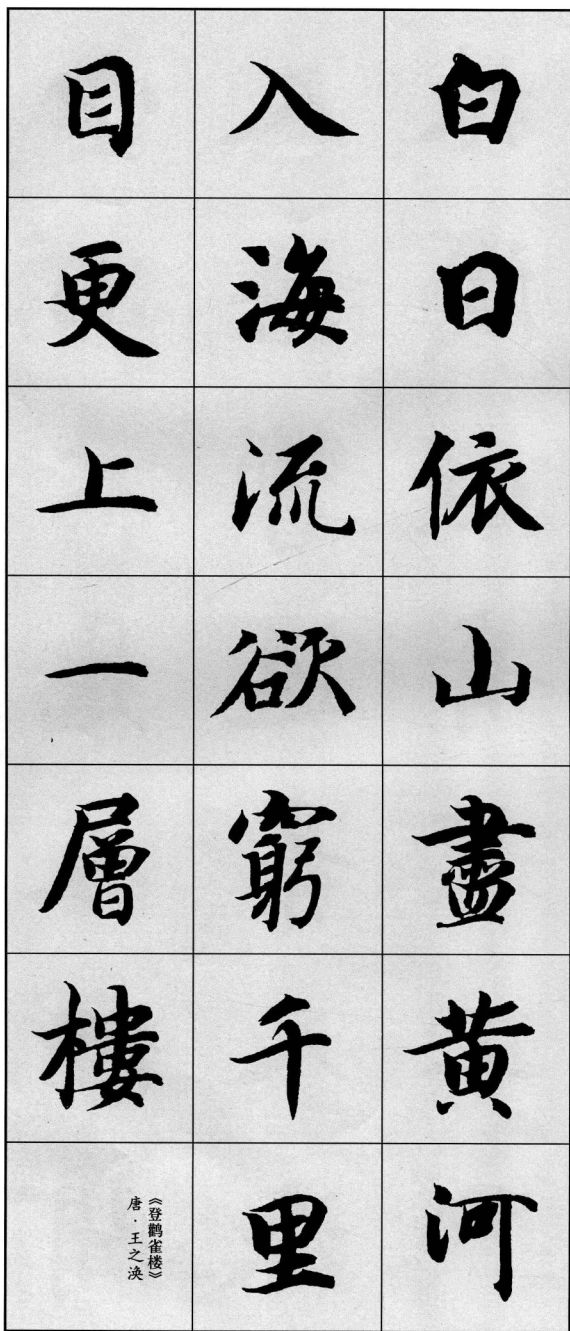 白日依山盡黄河
入海流欲窮千里
目更上一層樓
《登鹳雀楼》
唐·王之涣